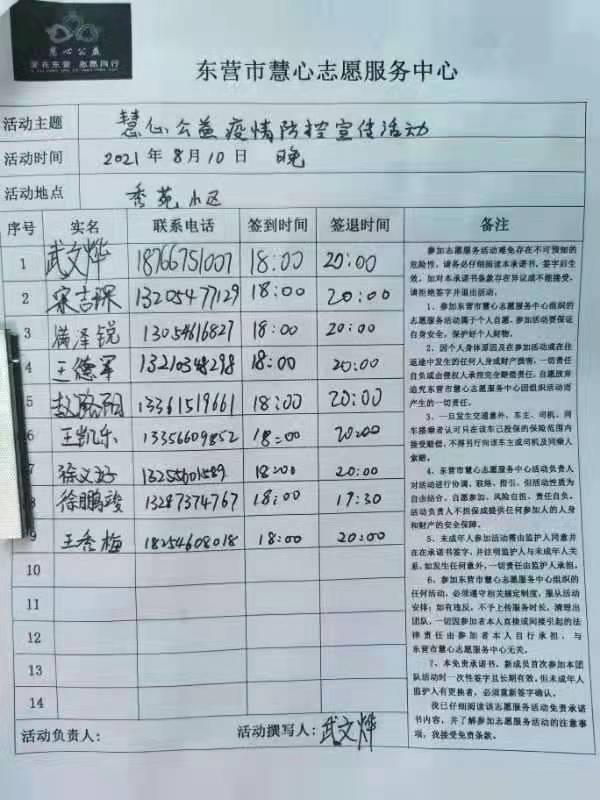 慧心公益
爱在东营 志愿同行
东营市慧心志愿服务中心
活动主题 慧心公益疫情防控宣传活动
活动时间 2021年8月10日 晚
活动地点 秀苑小区
序号 实名 联系电话 签到时间 签退时间 备注
1 武文烨 18766751007 18:00 20:00
2 宋吉琛 13205477129 18:00 20:00
3 泽锐 13054616827 18:00 20:00
4 王德军 13210348298 18:00 20:00
5 赵 13361519661 18:00 20:00
6 王凯乐 13356609852 18:00 20:00
7 徐文 18:00 20:00
8 徐鹏竣 13287374767 18:00 17:30
9 王秀梅 18254608018 18:00 20:00
10
11
12
13
14
参加志愿服务活动难免存在不可预知的
危险性，请务必仔细阅读本承诺书，签字后生
效。如对本承诺书条款存在异议或不能接受，
请拒绝签字并退出活动。
1、参加东营市慧心志愿服务中心组织的
志愿服务活动属于个人自愿。参加活动要保证
自身安全，保护好个人财物。
2、因个人身体原因及在参加活动或在往
返途中发生的任何人身或财产损害，一切责任
自负或由侵权人承担完全赔偿责任，自愿放弃
追究东营市慧心志愿服务中心因组织活动而
产生的一切责任。
3、一旦发生交通意外，车主、司机、同
车搭乘者认可只在该车已投保的保险范围内
接受赔偿，不得另行向该车主或司机及同乘人
索赔。
4、东营市慧心志愿服务中心活动负责人
对活动进行协调、联络、指引，但活动性质为
自由结合、自愿参加、风险自担、责任自负。
活动负责人不担保或提供任何参加人的人身
和财产的安全保障。
5、未成年人参加活动需由监护人同意并
在在承诺书签字，并注明监护人与未成年人关
系，如发生任何意外，一切责任由监护人承担。
6、参加东营市慧心志愿服务中心组织的
任何活动，必须遵守相关规定制度，服从活动
安排；如有违反，不予上传服务时长，清理出
团队，一切因参加者本人直接或间接引起的法
律责任由参加者本人自行承担，与
东营市慧心志愿服务中心无关。
7、本免责承诺书，新成员首次参加本团
队活动时一次性签字且长期有效。但未成年人
监护人有更换者，必须重新签字确认。
我已仔细阅读该志愿服务活动免责承诺
书内容，并了解参加志愿服务活动的注意事
项，我接受免责条款。
活动负责人： 活动撰写人：武文烨